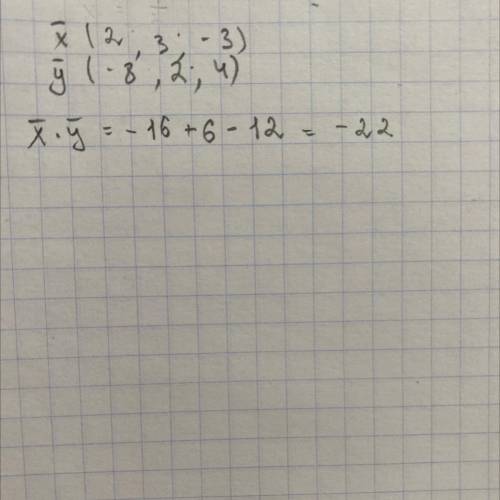 x̄ (2 ; 3 ; -3)
ȳ (-8 ; 2 ; 4)
x̄ · ȳ = -16 + 6 - 12 = -22